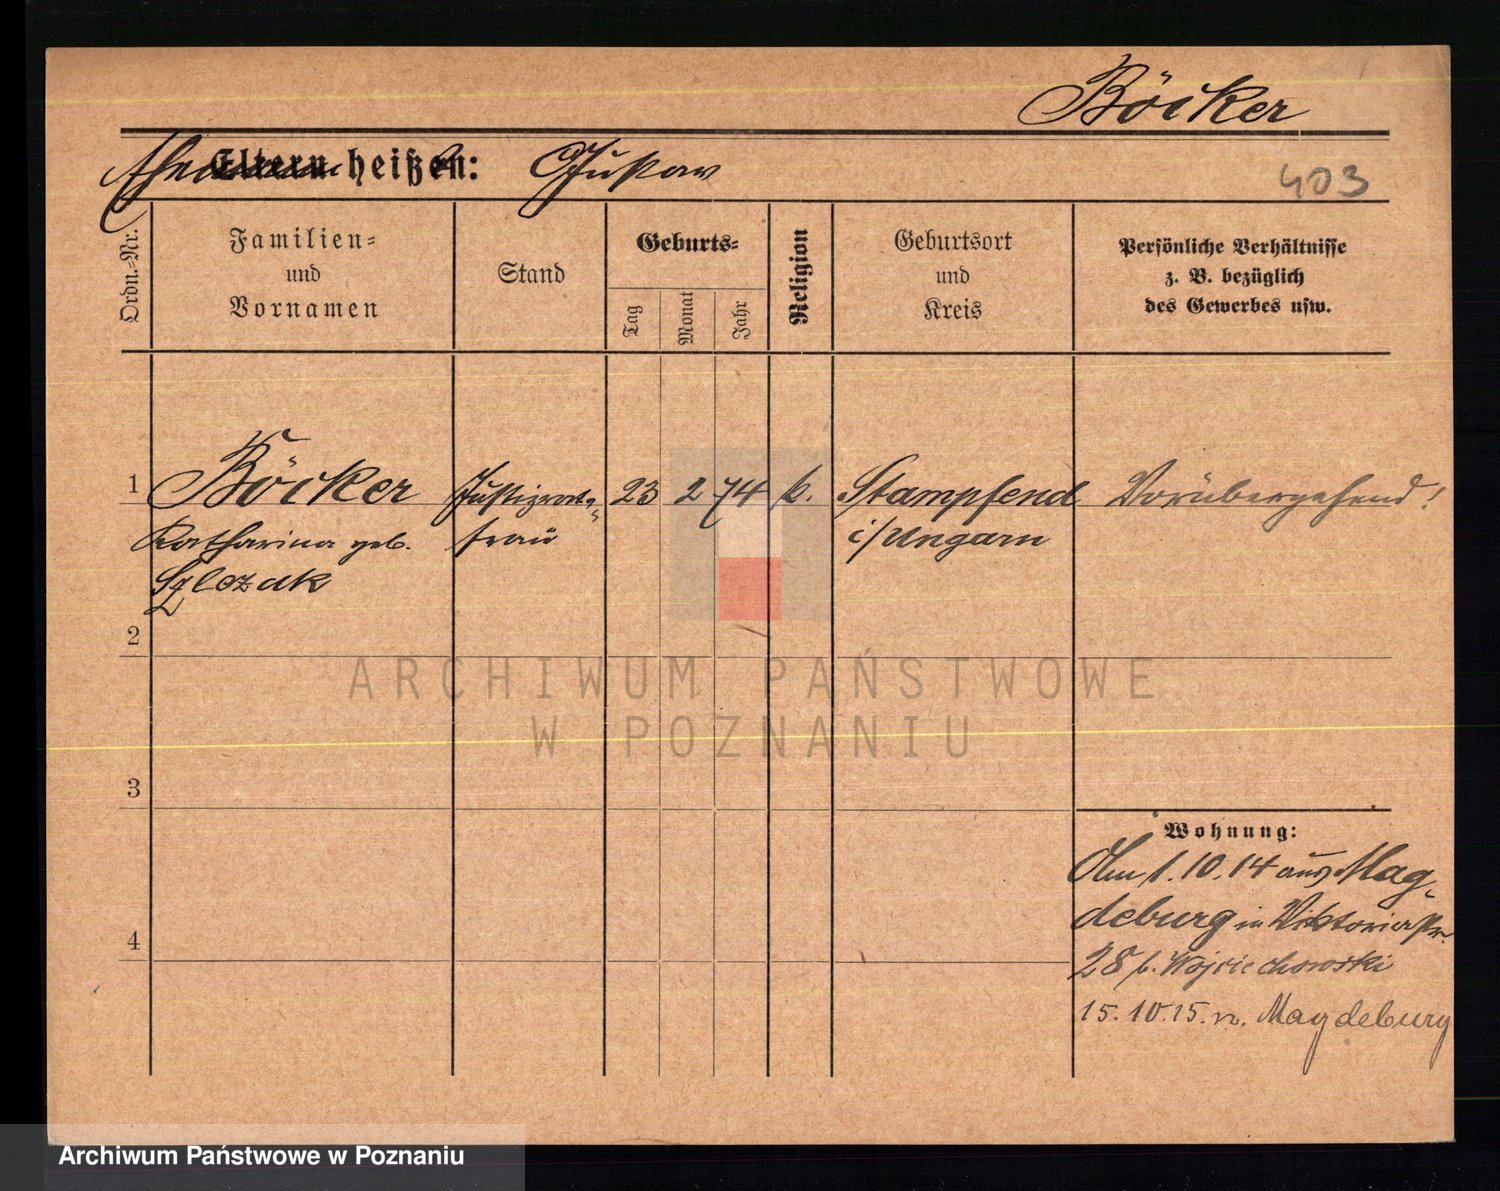 Böcker
Ehemann
Eltern heißen: Gustav
403
Ordn.-Nr.
Familien-
und
Vornamen
Stand
Geburts-
Tag
Monat
Jahr
Religion
Geburtsort
und
Kreis
Persönliche Verhältnisse
z. B. bezüglich
des Gewerbes usw.
1 Böcker Justizrats- 23 2 74 k. Stampfend Vorübergehend!
Katharina geb. frau i/Ungarn
2
3
4
Wohnung:
Am 1.10.14 aus Mag-
deburg in Viktoriastr.
28 b. Wojciechowski
15.10.15. n. Magdeburg
ARCHIWUM PAŃSTWOWE
W POZNANIU
Archiwum Państwowe w Poznaniu